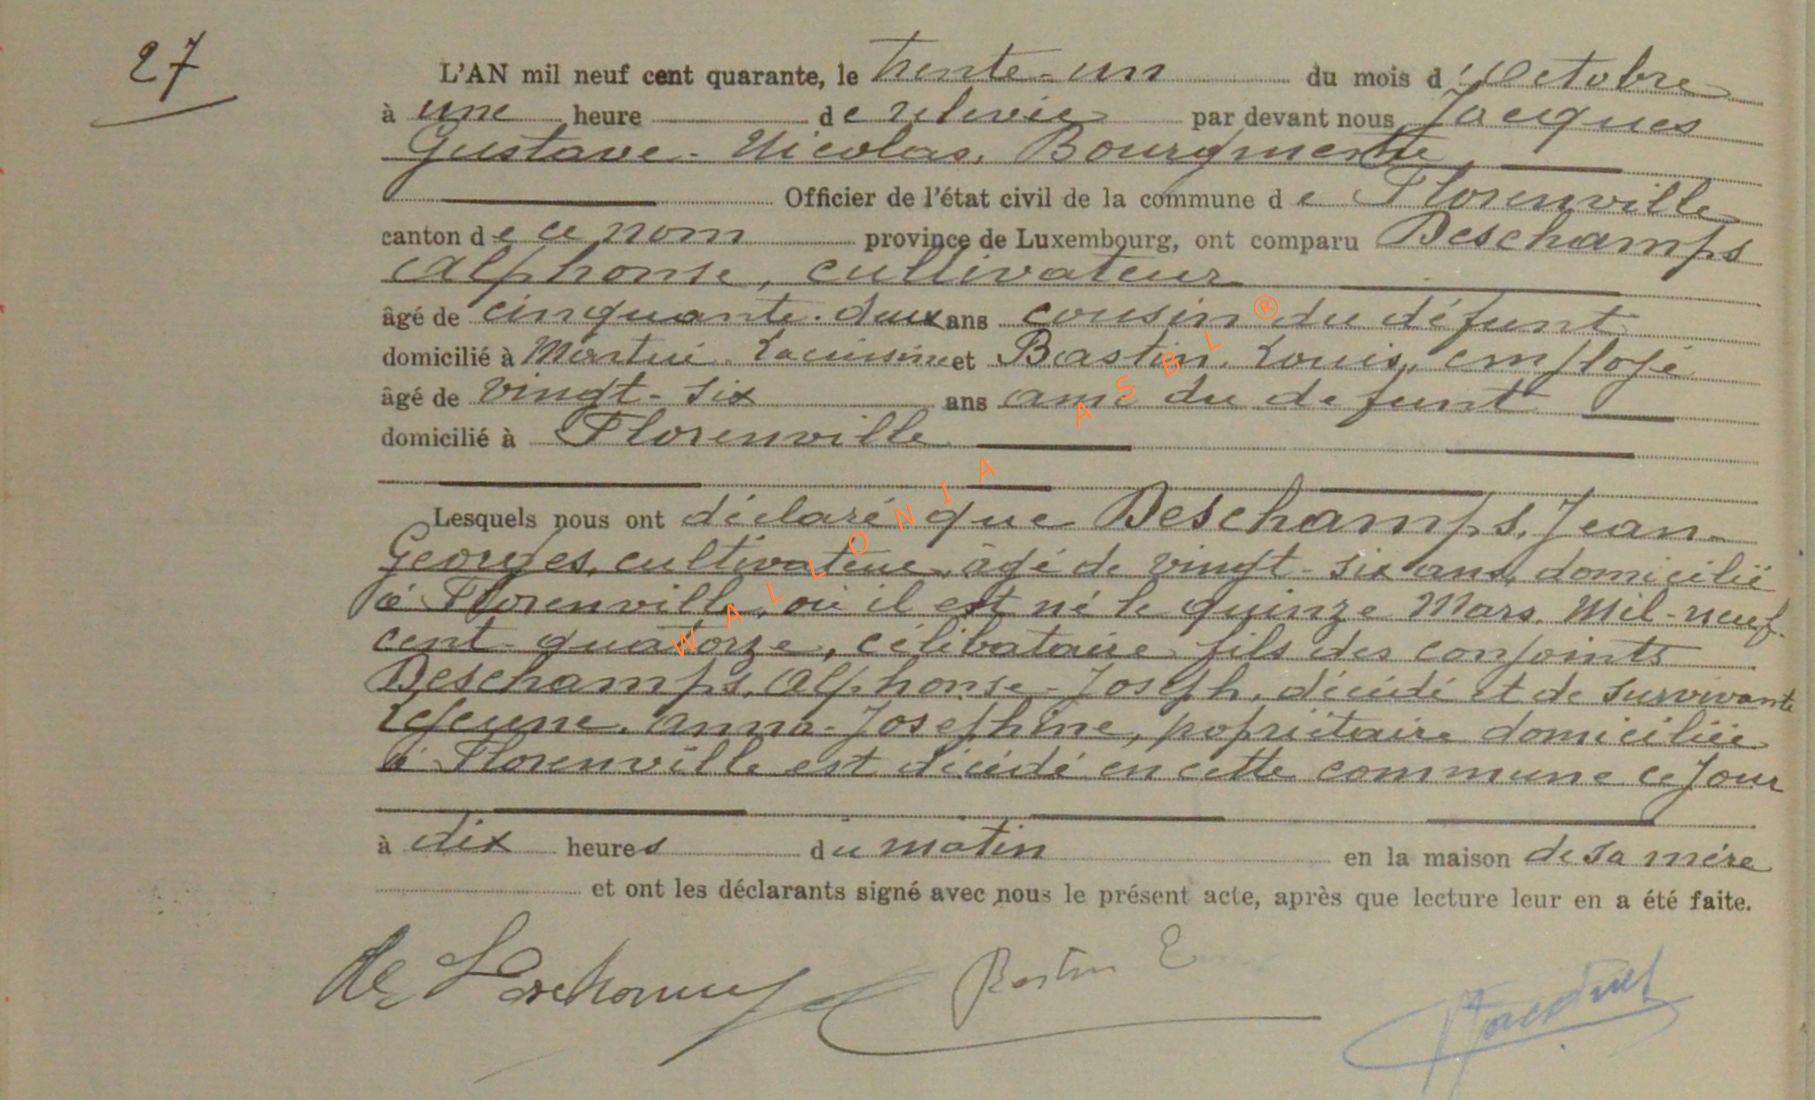 27
L'AN mil neuf cent quarante, le trente-un du mois d'Octobre
à une heure de relevée par devant nous Jacques
Gustave-Nicolas, Bourgmestre,
Officier de l'état civil de la commune de Florenville
canton de ce nom province de Luxembourg, ont comparu Deschamps
Alphonse, cultivateur
âgé de cinquante-deux ans cousin du défunt
domicilié à Martué-Lacuisine et Bastin, Louis, employé
âgé de vingt-six ans ami du défunt
domicilié à Florenville
Lesquels nous ont déclaré que Deschamps, Jean-
Georges, cultivateur, âgé de vingt-six ans, domicilié
à Florenville, où il est né le quinze Mars, Mil-neuf-
cent-quatorze, célibataire fils des conjoints
Deschamps, Alphonse-Joseph, décédé et de survivante
Lejeune, Anna-Joséphine, popriétaire domiciliée
à Florenville est décédé en cette commune ce jour
à dix heures du matin en la maison de sa mère
et ont les déclarants signé avec nous le présent acte, après que lecture leur en a été faite.
Bastin
WALLONIA ASBL ®